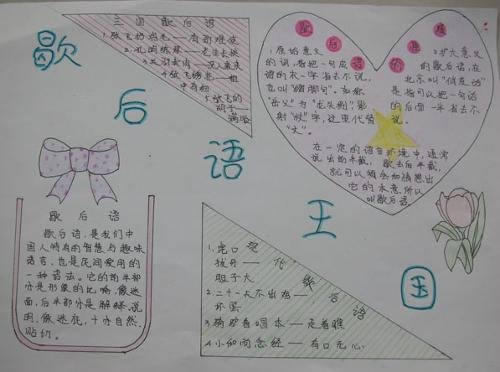 歇
后
语
王
国
三国歇后语
1、张飞扔鸡毛——有劲难使
2、孔明练琴——老生长谈
4、张飞绣花——粗
中有细
5、张飞的
胡子——
满脸
1、原始意义
的词,是把一句成
语的末一字省去不说,
也叫"缩脚语"。如称
"岳父"为"龙头拐",影
射"杖"字,这里代替
"丈"。
2、扩大意义
的歇后语,在
北京叫"俏皮话"
是指可以把一句话
的后面一半省去不
说。
在一定的语言环境中,通常
说出前半截,歇去后半截,
就可以领会和猜想出
它的本意,所以
叫歇后语。
歇后语
歇后语,是我们中
国人特有的智慧与趣味
语言,也是民间爱用的
一种语法。它的前半部
分是形象的比喻,像迷
面,后半部分是解释、说
明,像迷底,十分自然,
贴切。
现代歇后语
1、虎口
拔牙——
胆子大
2、二十一天不出鸡——
坏蛋
3、骑驴看唱本——走着瞧
4、小和尚念经——有口无心